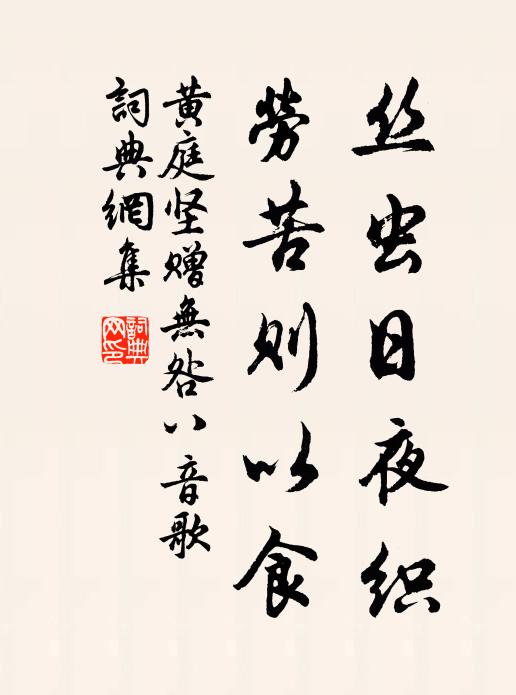 丝虫日夜织
劳苦则以食
黄庭坚赠無咎八音歌
詞典網集
詞典网印